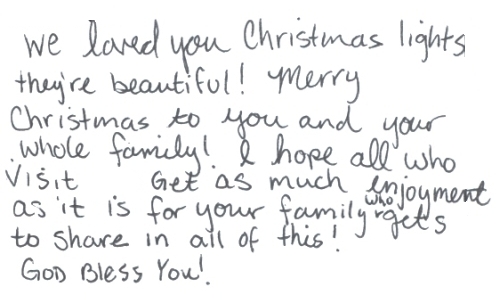 we loved you Christmas lights
they're beautiful! Merry
Christmas to you and your
whole family! I hope all who
Visit Get as much enjoyment
as it is for your family who gets
to share in all of this!
GOD Bless You!